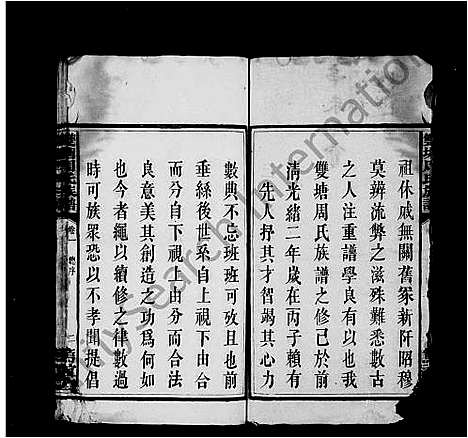 祖休戚無關舊家新阡昭穆
莫辨流弊之滋殊難悉數古
之人注重譜學良有以也我
雙塘周氏族譜之修已於前
清光緒二年歲在丙子賴有
先人抒其才智竭其心力
數典不忘班班可攷且也前
垂緜後世系自上視下由合
而分自下視上由分而合法
良意美其創造之功爲何如
也今者繩以續修之律數過
時可族眾恐以不孝聞提倡
卷一 總序